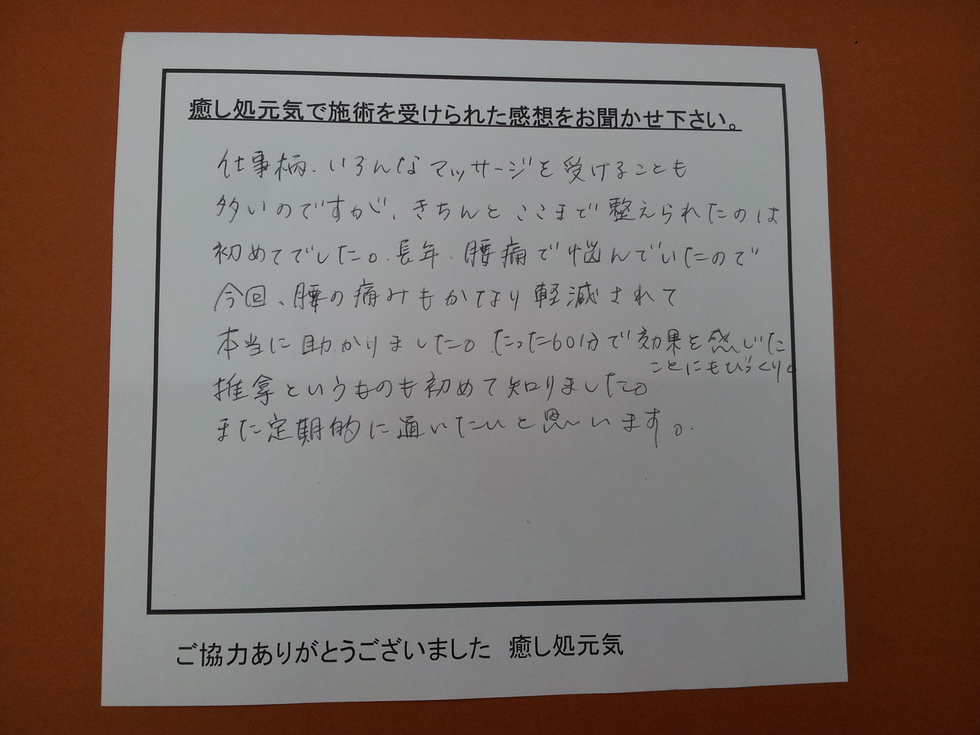 癒し処元気で施術を受けられた感想をお聞かせ下さい。
仕事柄、いろんなマッサージを受けることも
多いのですが、きちんとここまで整えられたのは
初めてでした。長年、腰痛で悩んでいたので
今回、腰の痛みもかなり軽減されて
本当に助かりました。たった60分で効果を感じた
ことにもびっくり。
推拿というものも初めて知りました。
また定期的に通いたいと思います。
ご協力ありがとうございました 癒し処元気